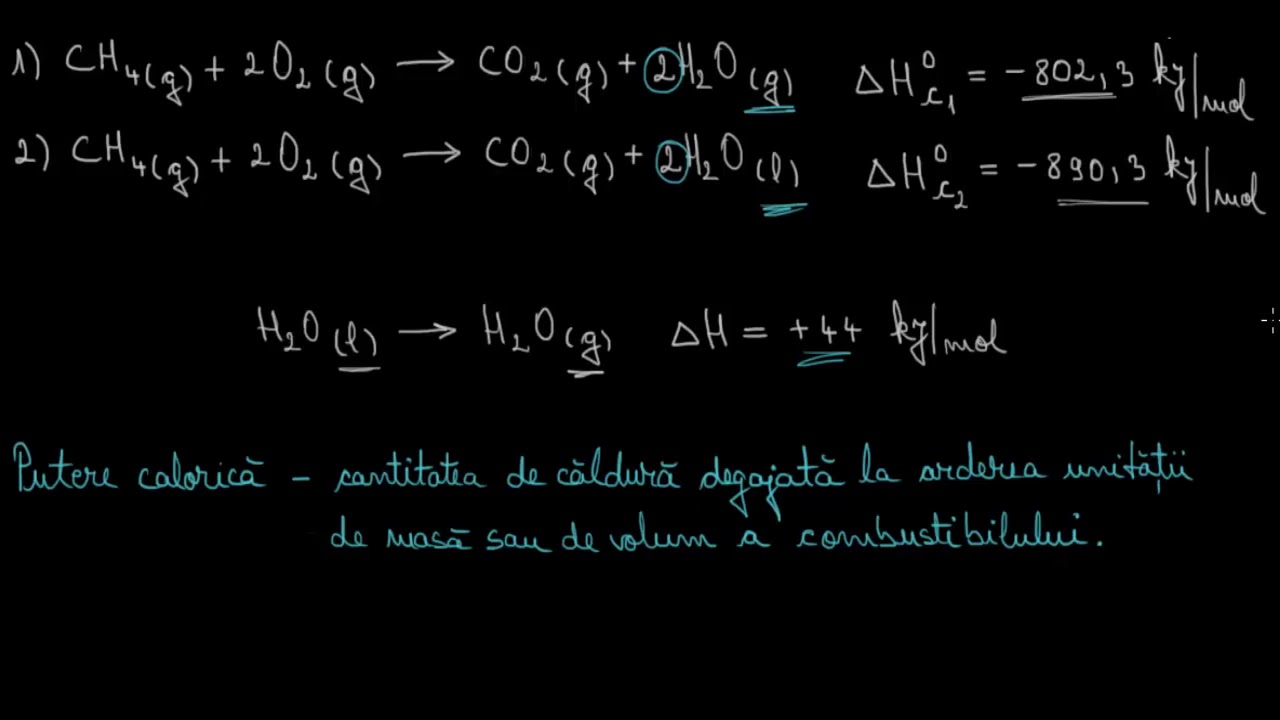 1) CH₄(g) + 2O₂(g) → CO₂(g) + 2H₂O(g) ΔH⁰c₁ = -802,3 kJ/mol
2) CH₄(g) + 2O₂(g) → CO₂(g) + 2H₂O(l) ΔH⁰c₂ = -890,3 kJ/mol
H₂O(l) → H₂O(g) ΔH = +44 kJ/mol
Putere calorică – cantitatea de căldură degajată la arderea unității
de masă sau de volum a combustibilului.